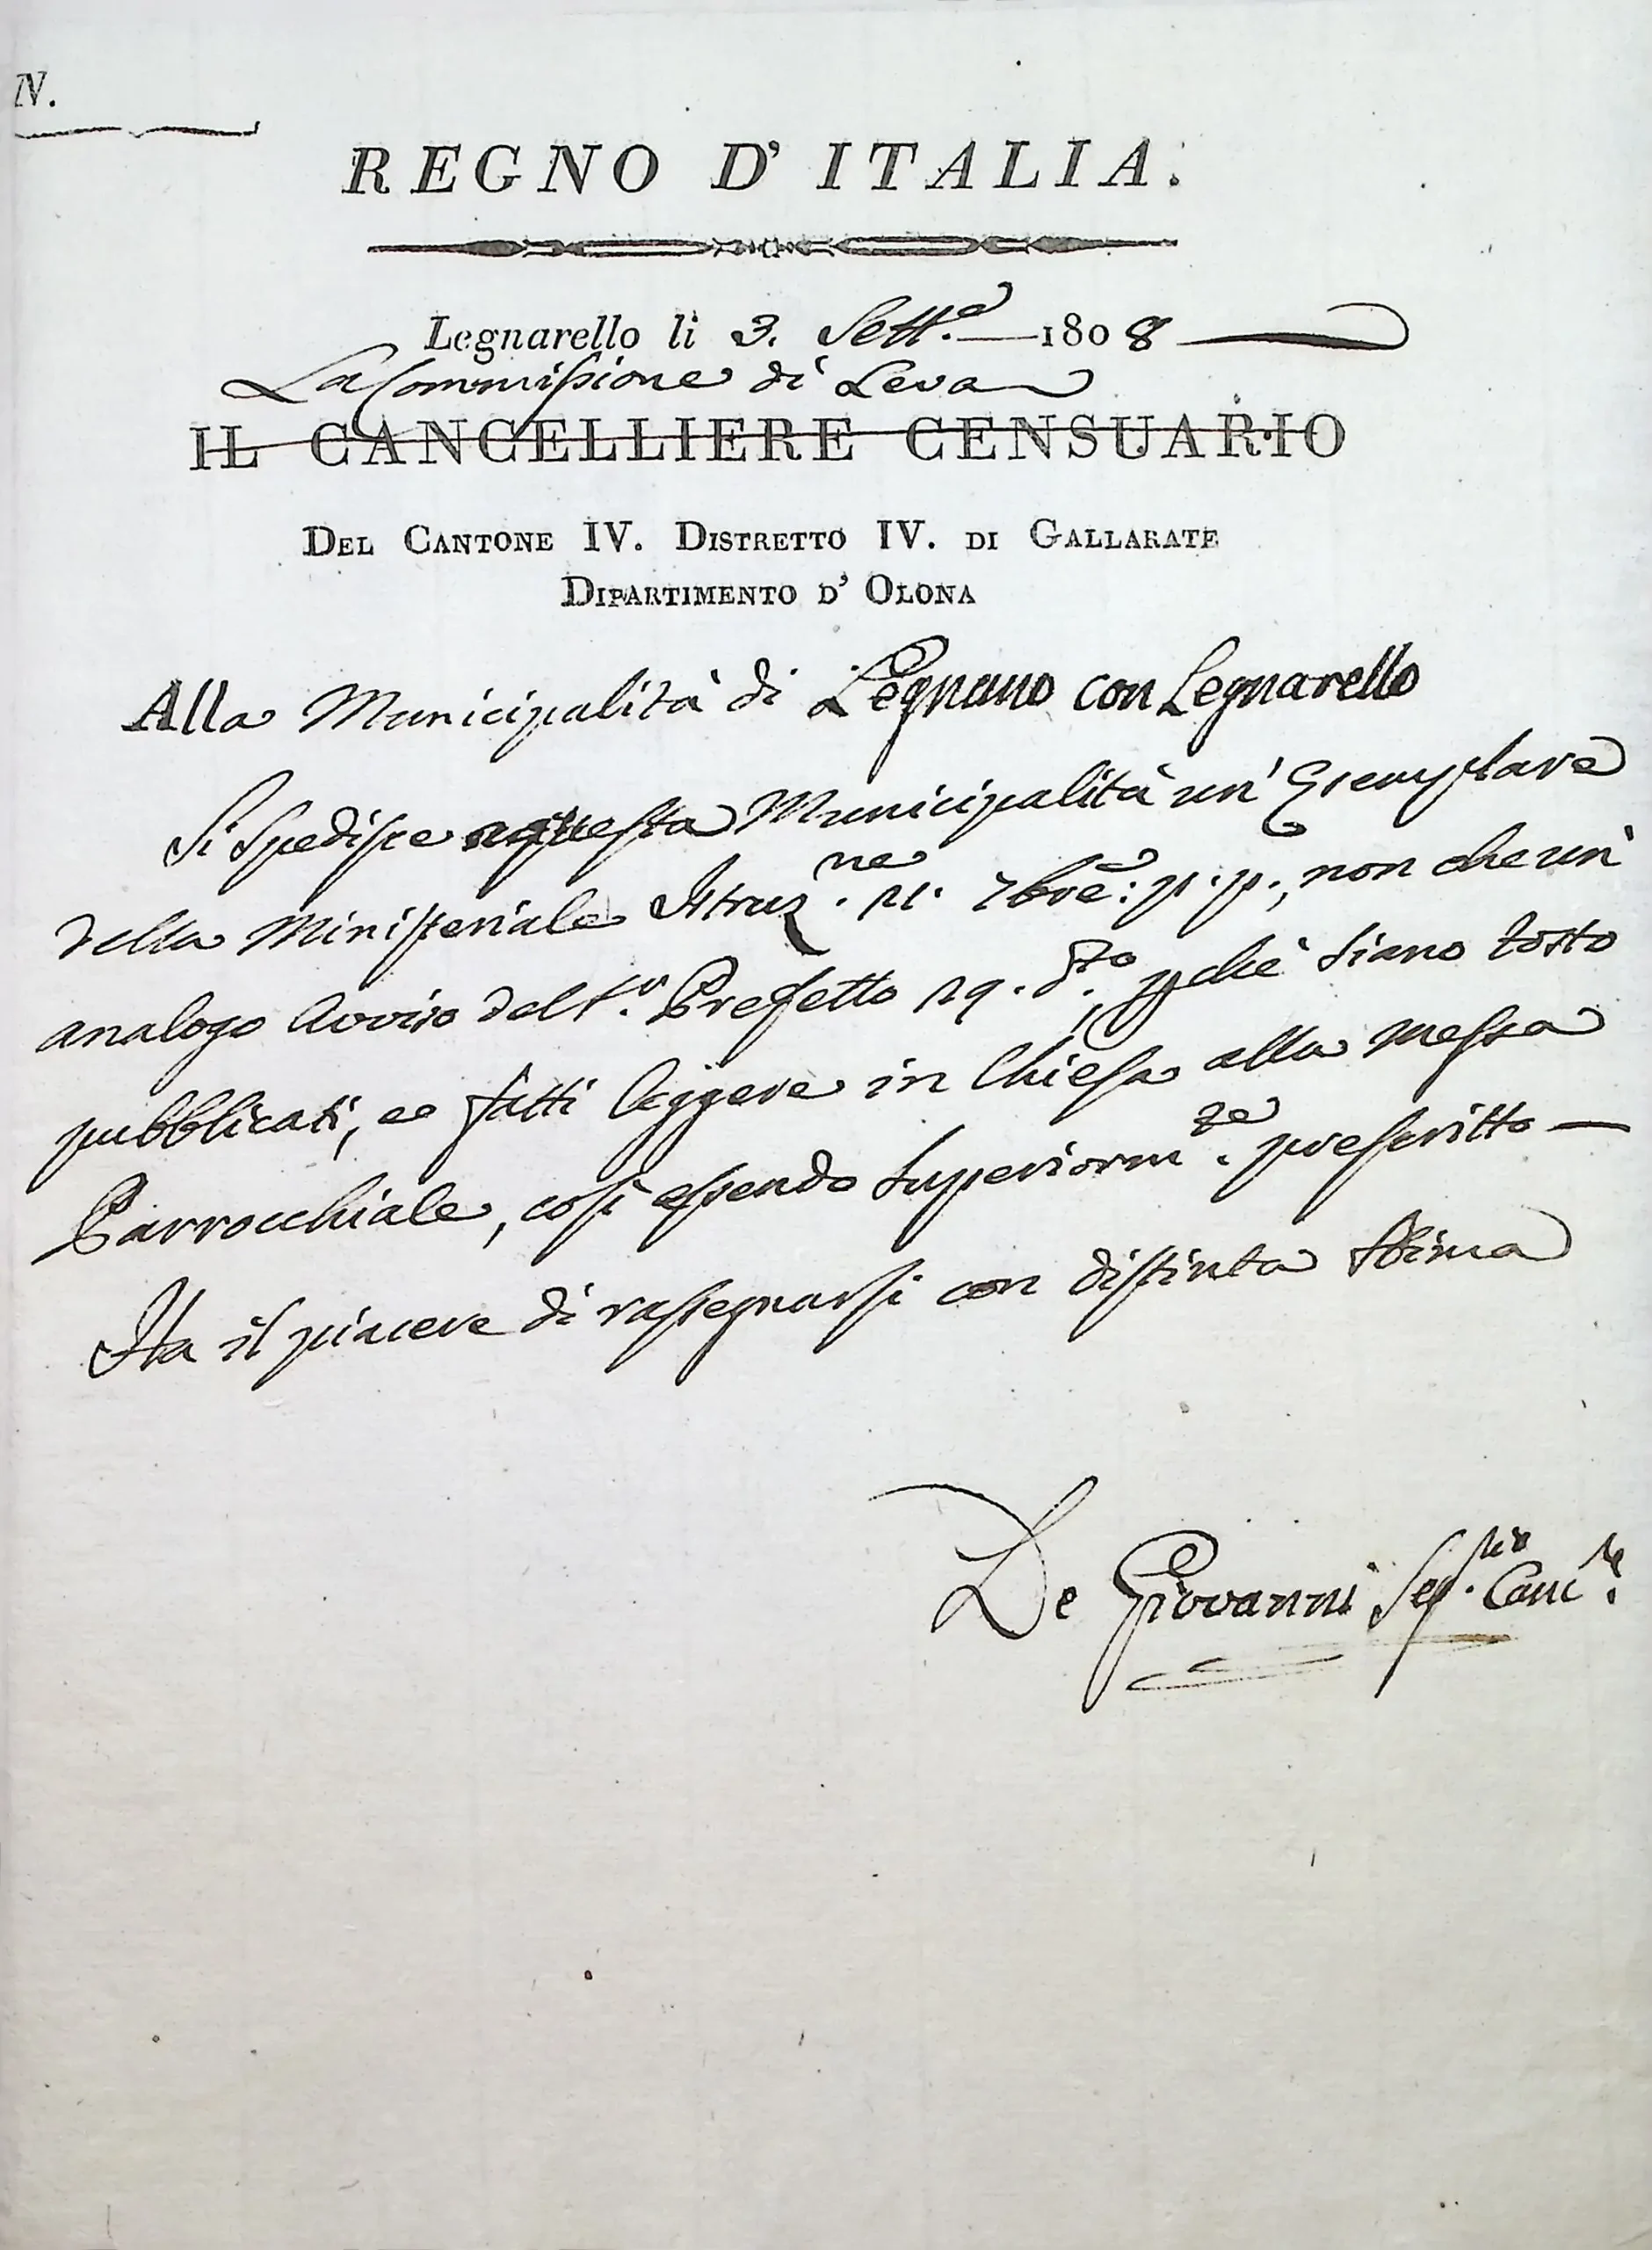 N.
REGNO D' ITALIA.
Legnarello li 3. Sett.e 1808
La Commissione di Leva
IL CANCELLIERE CENSUARIO
DEL CANTONE IV. DISTRETTO IV. DI GALLARATE
DIPARTIMENTO D' OLONA
Alla Municipalità di Legnano con Legnarello
Si spedisce a questa Municipalità un' Esemplare
della Ministeriale Istruz.ne 7bre: p. p., non che un'
analogo Avviso del Prefetto 29. d.to, pchè siano tosto
pubblicati, e fatti leggere in Chiesa alla messa
Parrocchiale, così essendo superiorm.te prescritto —
Ha il piacere di rassegnarsi con distinta stima
De Giovanni Seg.rio Canc.re